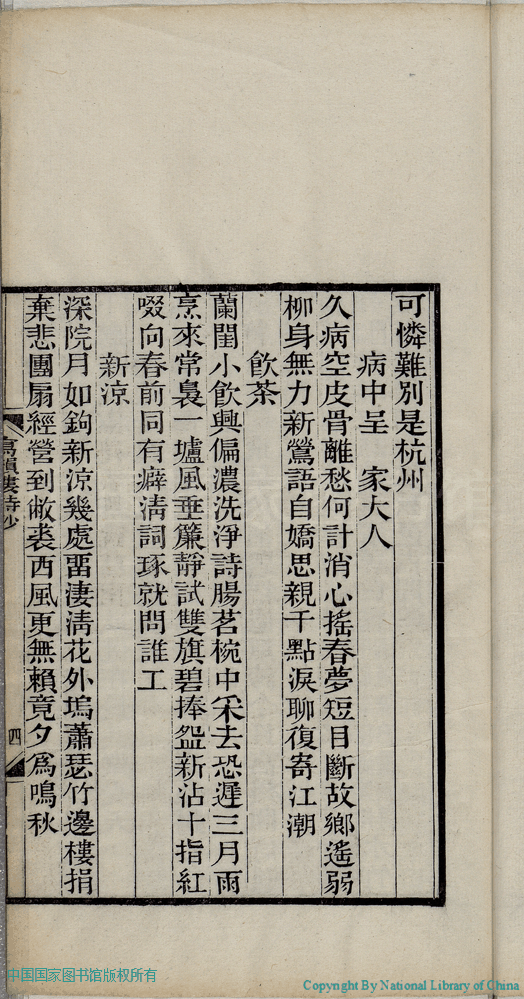 可憐難別是杭州
病中呈　家大人
久病空皮骨離愁何計消心搖春夢短目斷故鄉遙弱
柳身無力新鶯語自嬌思親千點淚聊復寄江潮
飲茶
蘭閨小飲興偏濃洗淨詩腸茗椀中采去恐遲三月雨
烹來常裊一壚風垂簾靜試雙旗碧捧盌新沾十指紅
啜向春前同有癖清詞琢就問誰工
新涼
深院月如鉤新涼幾處畱淒清花外塢蕭瑟竹邊樓捐
棄悲團扇經營到敝裘西風更無賴竟夕爲鳴秋
樓詩鈔
四
中国国家图书馆版权所有
Copyright By National Library of China